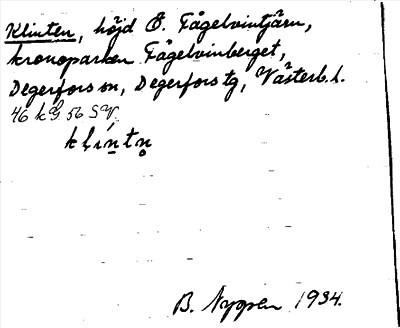 Klinten, höjd Ö. Fågelvintjärn,
kronoparken Fågelvinberget,
Degerfors sn, Degerfors tg, Västerb. l.
46 kg 56 SV.
klintn
B. Nygren 1934.